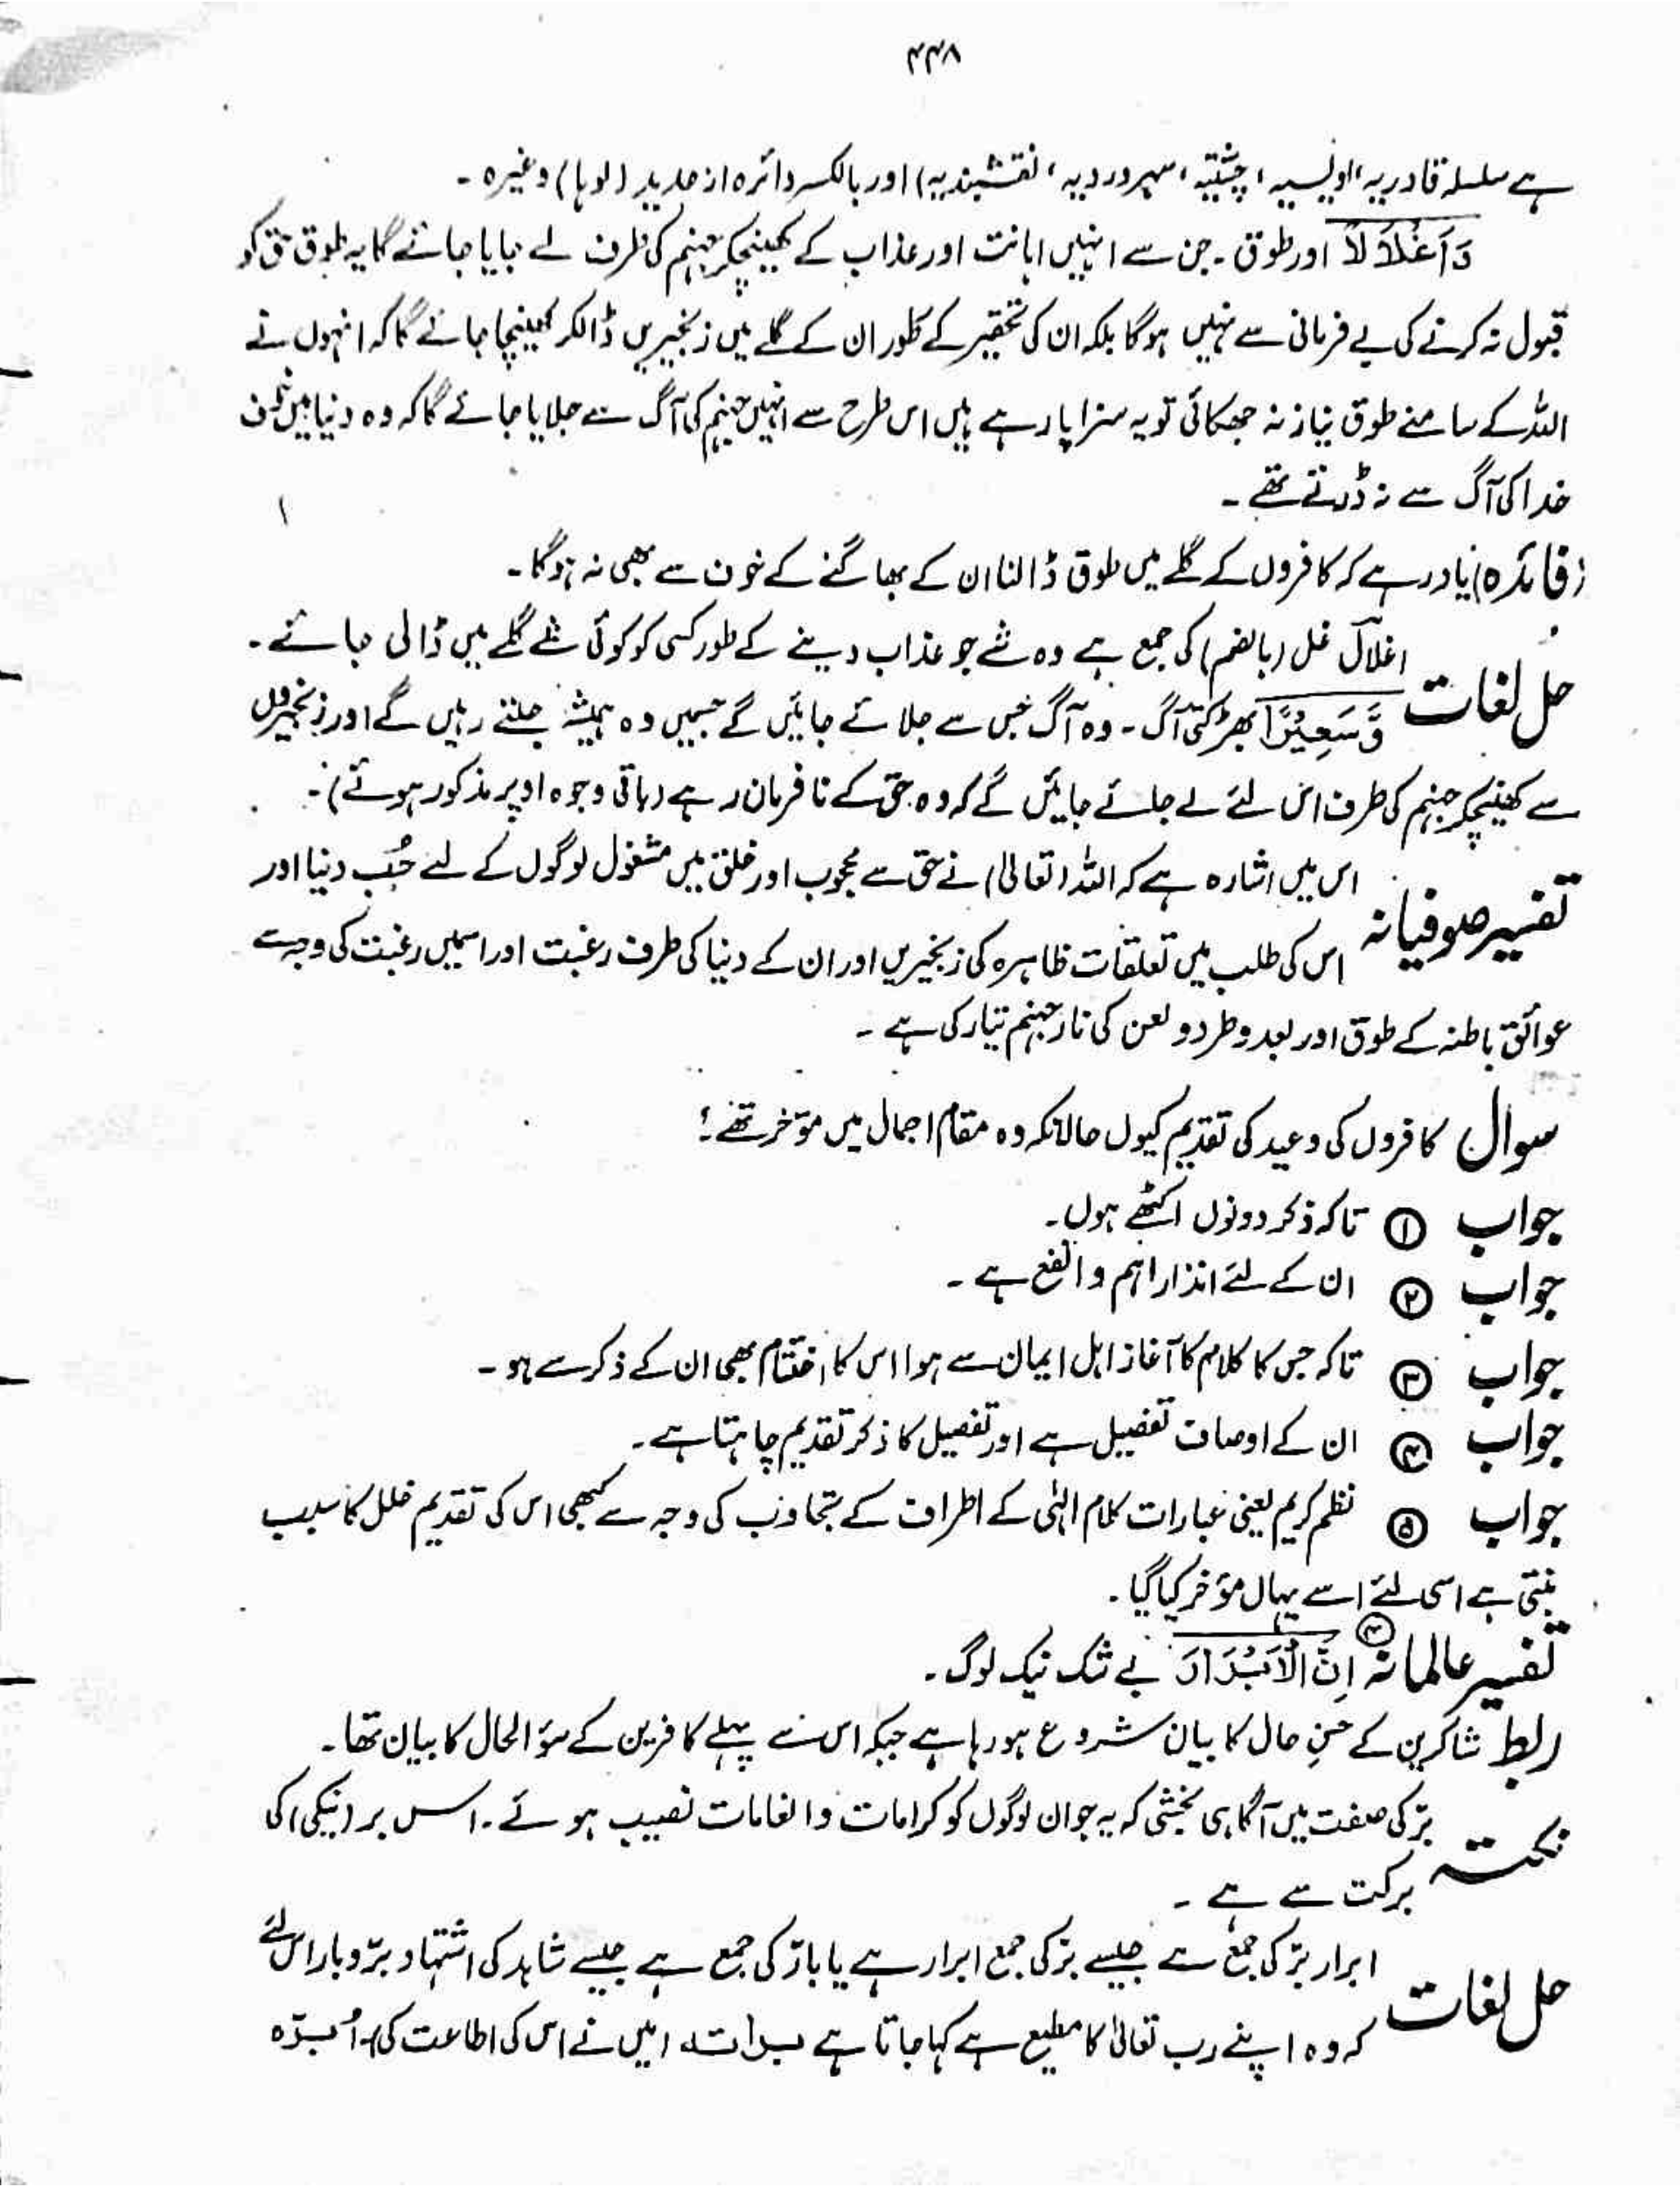 ۴۴۸
ہے سلسلہ قادریہ، اویسیہ، چشتیہ، سہروردیہ، نقشبندیہ) اور بالکسر دائرہ از حدید (لوہا) وغیرہ۔
وَاَغْلَالًا اور طوق۔ جن سے انہیں اہانت اور عذاب کے کھینچکر جہنم کی طرف لے جایا جائے گا یہ طوق حق کو
قبول نہ کرنے کی بے فرمانی سے نہیں ہوگا بلکہ ان کی تحقیر کے طور ان کے گلے میں زنجیریں ڈالکر کھینچا جائے گا کہ انہوں نے
اللہ کے سامنے طوق نیاز نہ جھکائی تو یہ سزا پا رہے ہیں اس طرح سے انہیں جہنم کی آگ سے جلایا جائے گا کہ وہ دنیا میں خوف
خدا کی آگ سے نہ ڈرتے تھے۔
(فائدہ) یاد رہے کہ کافروں کے گلے میں طوق ڈالنا ان کے بھاگنے کے خوف سے بھی نہ ہوگا۔
حل لغات اغلال غل (بالضم) کی جمع ہے وہ شے جو عذاب دینے کے طور کسی کو کوئی شے گلے میں ڈالی جائے۔
وَّسَعِیْرًا بھڑکتی آگ۔ وہ آگ جس سے جلائے جائیں گے جسمیں وہ ہمیشہ جلتے رہیں گے اور زنجیروں
سے کھینچکر جہنم کی طرف اس لئے لے جائے جائیں گے کہ وہ حق کے نافرمان رہے (باقی وجوہ اوپر مذکور ہوئے)۔
تفسیر صوفیانہ اس میں اشارہ ہے کہ اللہ (تعالیٰ) نے حق سے محجوب اور خلق میں مشغول لوگوں کے لئے حُب دنیا اور
اس کی طلب میں تعلقات ظاہرہ کی زنجیریں اور ان کے دنیا کی طرف رغبت اور اسمیں رغبت کی وجہ سے
عوائق باطنہ کے طوق اور بعد و طرد و لعن کی نار جہنم تیار کی ہے۔
سوال کافروں کی وعید کی تقدیم کیوں حالانکہ وہ مقام اجمال میں مؤخر تھے؟
جواب ① تاکہ ذکر دونوں اکٹھے ہوں۔
جواب ② ان کے لئے انذار اہم و انفع ہے۔
جواب ③ تاکہ جس کا کلام کا آغاز اہل ایمان سے ہوا اس کا اختتام بھی ان کے ذکر سے ہو۔
جواب ④ ان کے اوصاف تفصیل ہے اور تفصیل کا ذکر تقدیم چاہتا ہے۔
جواب ⑤ نظم کریم یعنی عبارات کلام الٰہی کے اطراف کے تجاذب کی وجہ سے کبھی اس کی تقدیم خلل کا سبب
بنتی ہے اسی لئے اسے یہاں مؤخر کیا گیا۔
تفسیر عالمانہ ④ اِنَّ الْاَبْرَارَ بے شک نیک لوگ۔
ربط شاکرین کے حسنِ حال کا بیان شروع ہو رہا ہے جبکہ اس سے پہلے کافرین کے سؤ الحال کا بیان تھا۔
نکتہ برّ کی صفت میں آگاہی بخشی کہ یہ جو ان لوگوں کو کرامات و انعامات نصیب ہوئے۔ اس بر (نیکی) کی
برکت سے ہے۔
حل لغات ابرار برّ کی جمع ہے جیسے برّ کی جمع ابرار ہے یا بارّ کی جمع ہے جیسے شاہد کی اشہاد برّ و بار اس لئے
کہ وہ اپنے رب تعالیٰ کا مطیع ہے کہا جاتا ہے میں نے اس کی اطاعت کی اُبرّہ